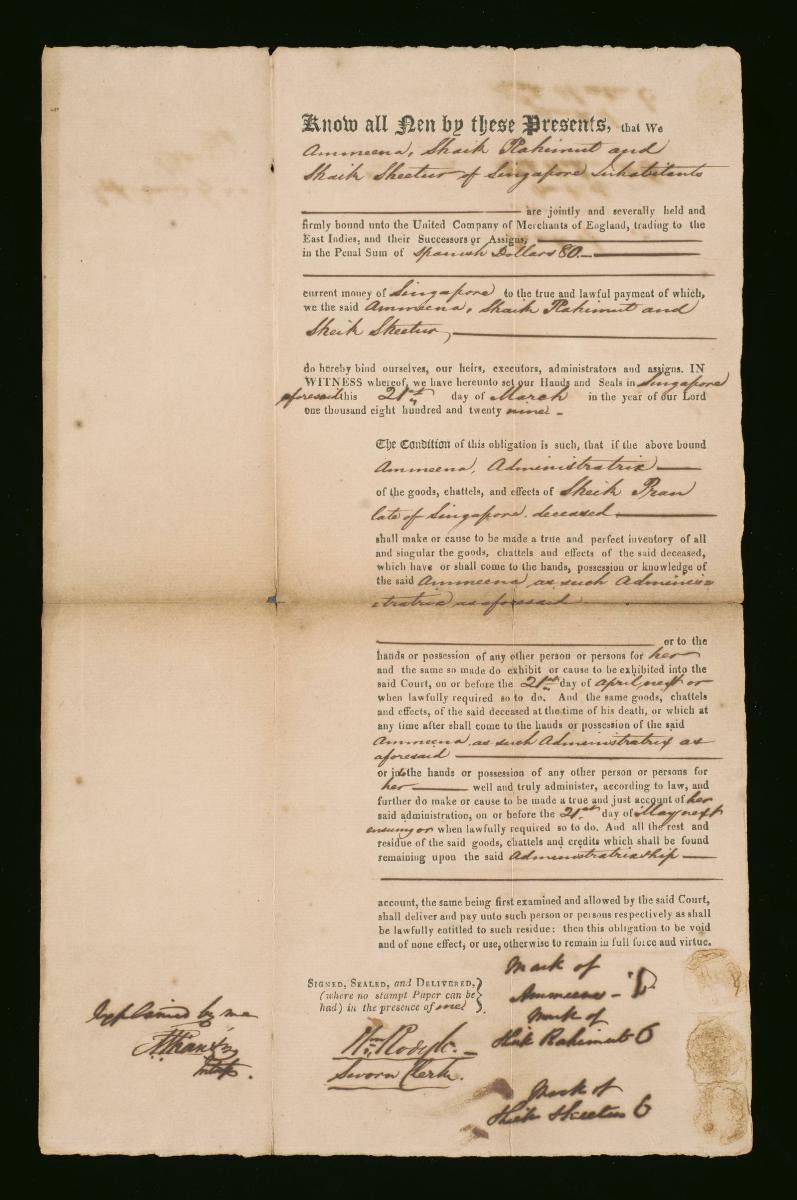 Know all Men by these Presents, that We
Ammeena, Shaik Rahimut and
Shaik Skeetur of Singapore Inhabitants
are jointly and severally held and
firmly bound unto the United Company of Merchants of England, trading to the
East Indies, and their Successors or Assigns,
in the Penal Sum of Spanish Dollars 80.
current money of Singapore to the true and lawful payment of which,
we the said Ammeena, Shaik Rahimut and
Sheik Skeetur,
do hereby bind ourselves, our heirs, executors, administrators and assigns. IN
WITNESS whereof, we have hereunto set our Hands and Seals in Singapore
aforesaid this 21st day of March in the year of our Lord
one thousand eight hundred and twenty nine.
The Condition of this obligation is such, that if the above bound
Ammeena, Administratrix
of the goods, chattels, and effects of Sheik
late of Singapore. deceased
shall make or cause to be made a true and perfect inventory of all
and singular the goods, chattels and effects of the said deceased,
which have or shall come to the hands, possession or knowledge of
the said Ammeena as such Adminis=
=tratrix as aforesaid
or to the
hands or possession of any other person or persons for her
and the same so made do exhibit or cause to be exhibited into the
said Court, on or before the 21st day of April next or
when lawfully required so to do. And the same goods, chattels
and effects, of the said deceased at the time of his death, or which at
any time after shall come to the hands or possession of the said
Ammeena as such Administratrix as
aforesaid
or into the hands or possession of any other person or persons for
her well and truly administer, according to law, and
further do make or cause to be made a true and just account of her
said administration, on or before the 21st day of May next
ensuing or when lawfully required so to do. And all the rest and
residue of the said goods, chattels and credits which shall be found
remaining upon the said Administratrixship
account, the same being first examined and allowed by the said Court,
shall deliver and pay unto such person or persons respectively as shall
be lawfully entitled to such residue: then this obligation to be void
and of none effect, or use, otherwise to remain in full force and virtue.
SIGNED, SEALED, and DELIVERED,
(where no stampt Paper can be
had) in the presence of me
Mark of
Ammeena
Mark of
Sheik Rahimut
Mark of
Sheik Skeetur
Explained by me
Sworn Clerk.